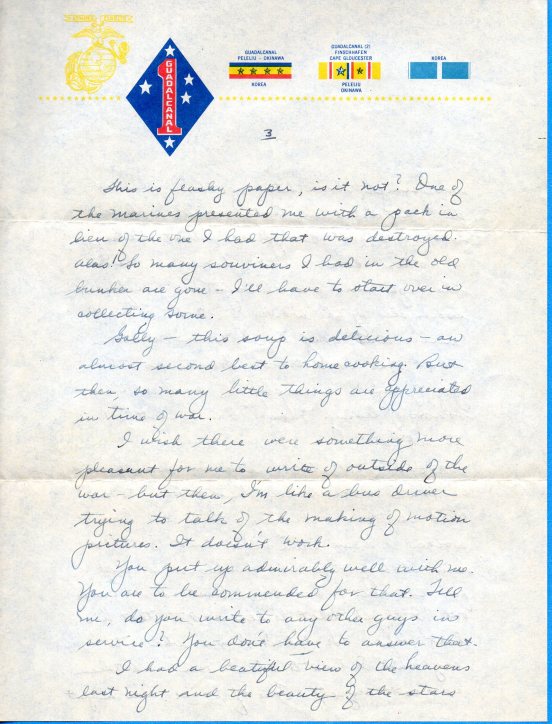 GUADALCANAL
PELELIU - OKINAWA
KOREA
GUADALCANAL (2)
FINSCHHAFEN
CAPE GLOUCESTER
PELELIU
OKINAWA
KOREA
1
GUADALCANAL
3
This is flashy paper, is it not? One of
the marines presented me with a pack in
lieu of the one I had that was destroyed.
alas! So many souviners I had in the old
bunker are gone - I'll have to start over in
collecting some.
Golly - this soup is delicious - an
almost second best to home cooking. But
then, so many little things are appreciated
in time of war.
I wish there were something more
pleasant for me to write of outside of the
war - but then, I'm like a bus driver
trying to talk of the making of motion
pictures. It doesn't work.
You put up admirably well with me.
You are to be commended for that. Tell
me, do you write to any other guys in
service? You don't have to answer that.
I had a beatiful view of the heavens
last night and the beauty of the stars